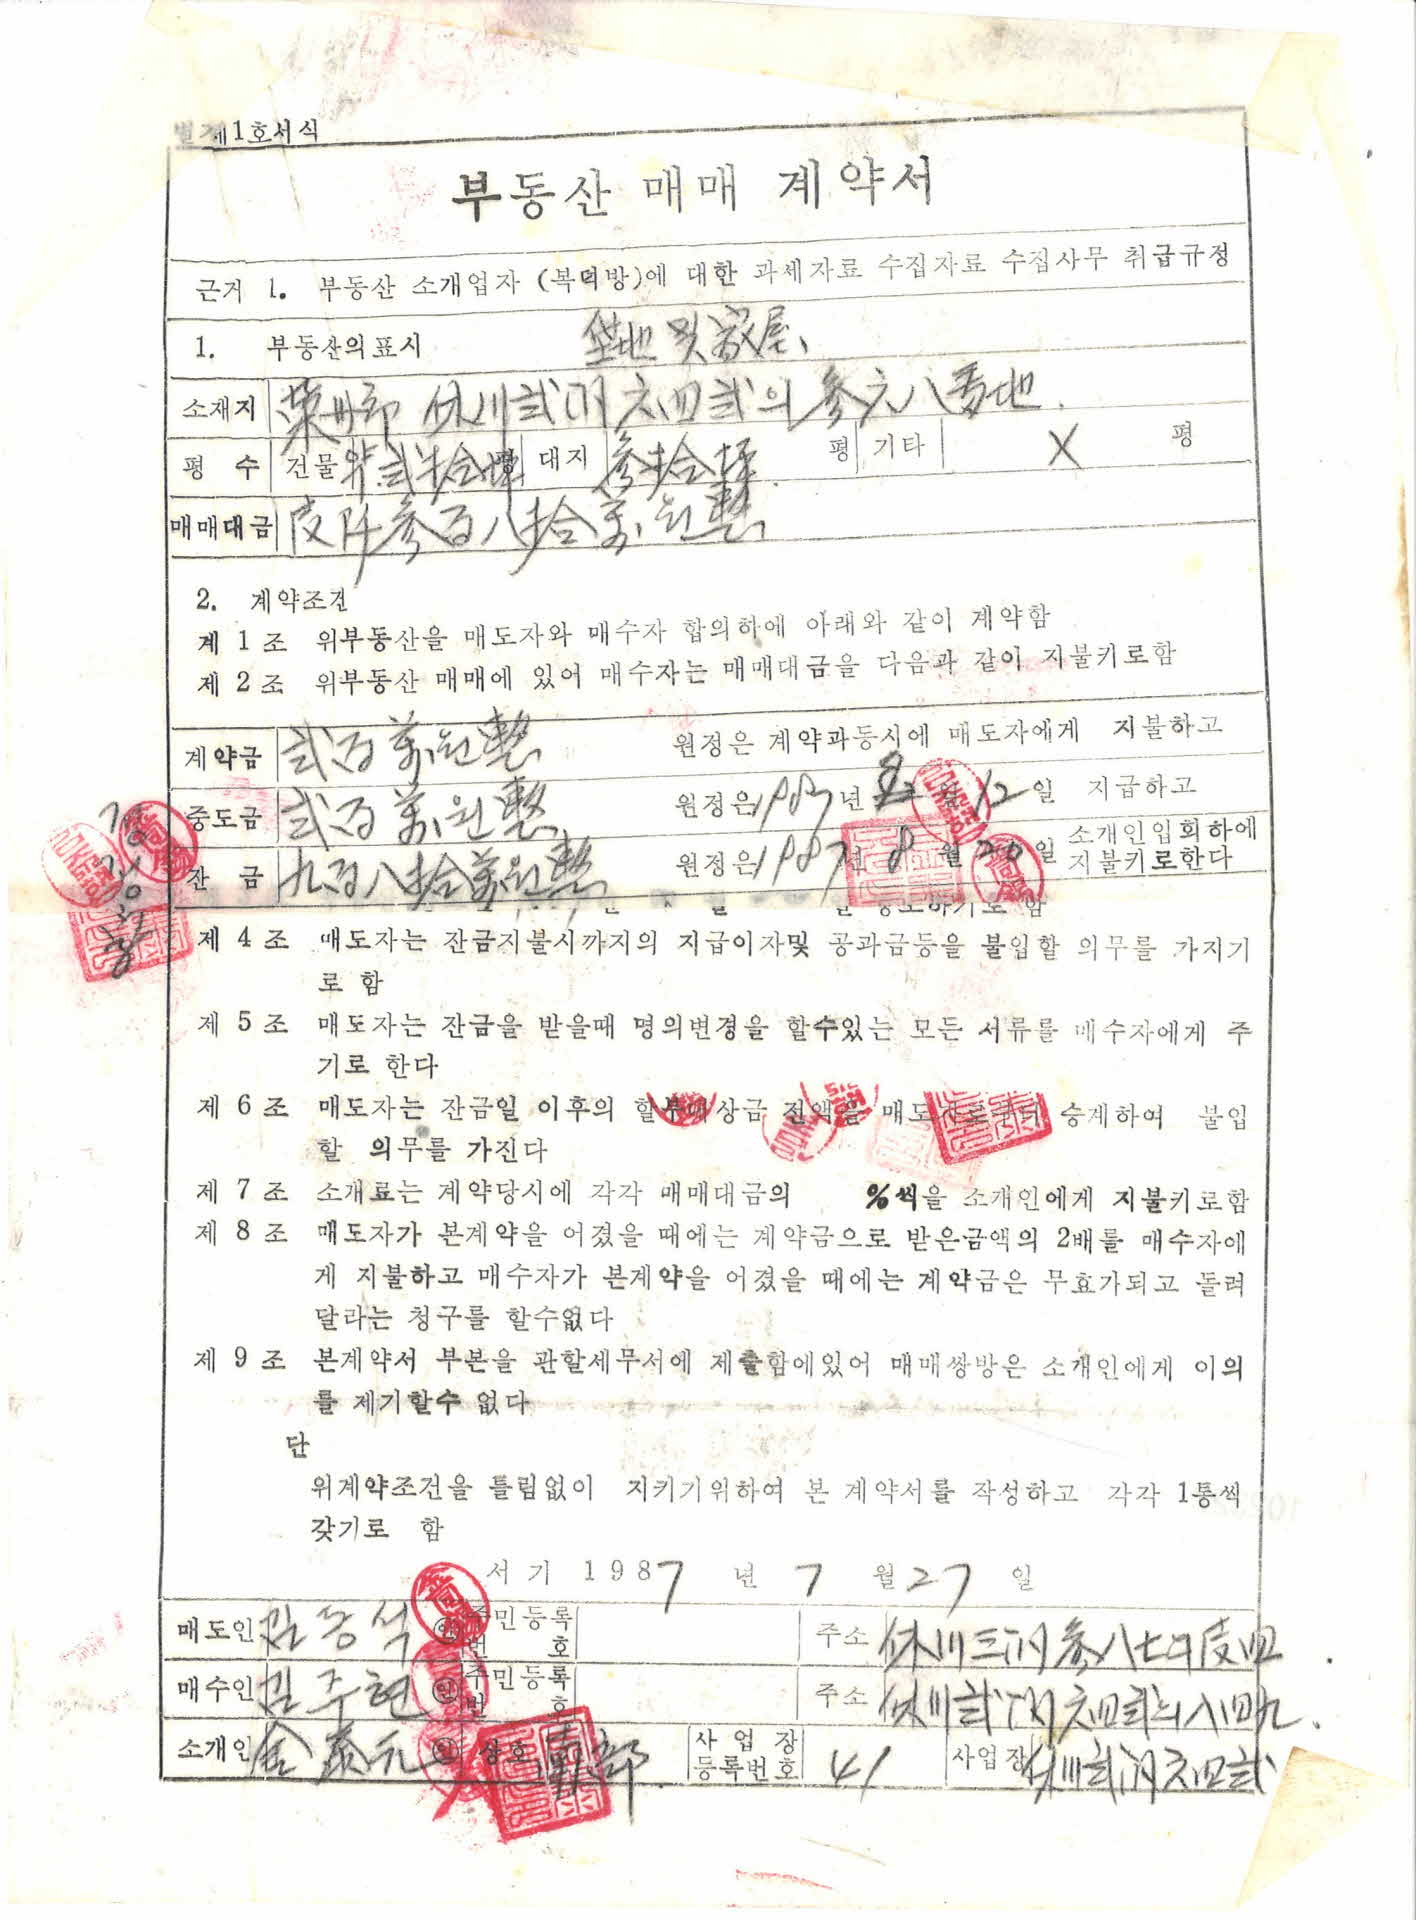 제1호서식
부동산 매매 계약서
근거 1. 부동산 소개업자 (복덕방)에 대한 과세자료 수집자료 수집사무 취급규정
1. 부동산의표시 垈地 및 家屋
소재지 休川貳洞 六四貳의 參六八番地
평 수 건물 약 貳拾坪 평 대지 參拾坪 평 기타 X 평
매매대금 參百八拾萬원整
2. 계약조건
제1조 위부동산을 매도자와 매수자 합의하에 아래와 같이 계약함
제2조 위부동산 매매에 있어 매수자는 매매대금을 다음과 같이 지불키로함
계약금 貳百萬원整 원정은 계약과동시에 매도자에게 지불하고
중도금 貳百萬원整 원정은 1987년 월 12일 지급하고
잔 금 九百八拾萬원整 원정은 1987년 8월 20일 소개인입회하에 지불키로한다
제4조 매도자는 잔금지불시까지의 지급이자및 공과금등을 불입할 의무를 가지기
로 함
제5조 매도자는 잔금을 받을때 명의변경을 할수있는 모든 서류를 매수자에게 주
기로 한다
제6조 매도자는 잔금일 이후의 할부대상금 전액을 매도자로부터 승계하여 불입
할 의무를 가진다
제7조 소개료는 계약당시에 각각 매매대금의 %씩을 소개인에게 지불키로함
제8조 매도자가 본계약을 어겼을 때에는 계약금으로 받은금액의 2배를 매수자에
게 지불하고 매수자가 본계약을 어겼을 때에는 계약금은 무효가되고 돌려
달라는 청구를 할수없다
제9조 본계약서 부본을 관할세무서에 제출함에있어 매매쌍방은 소개인에게 이의
를 제기할수 없다
단
위계약조건을 틀림없이 지키기위하여 본 계약서를 작성하고 각각 1통씩
갖기로 함
서기 1987년 7월 27일
매도인 김 석 주민등록번호 주소 休川三洞 參八七의
매수인 김주현 주민등록번호 주소 休川貳洞 六四貳의 八四九
소개인 金 元 상호 사업장등록번호 41 사업장 休川貳洞 六四貳